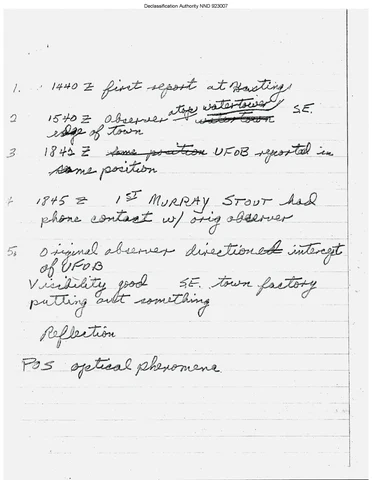 Declassification Authority NND 923007
1. 1440 Z first report at Hastings
2 1540 Z observer atop watertower S.E.
edge of town
3 1842 Z same position UFOB reported in
same position
4 1845 Z 1ST MURRAY STOUT had
phone contact w/ orig observer
5. Original observer directioned intercept
of UFOB
Visibility good S.E. town factory
putting out something
Reflection
POS optical phenomena